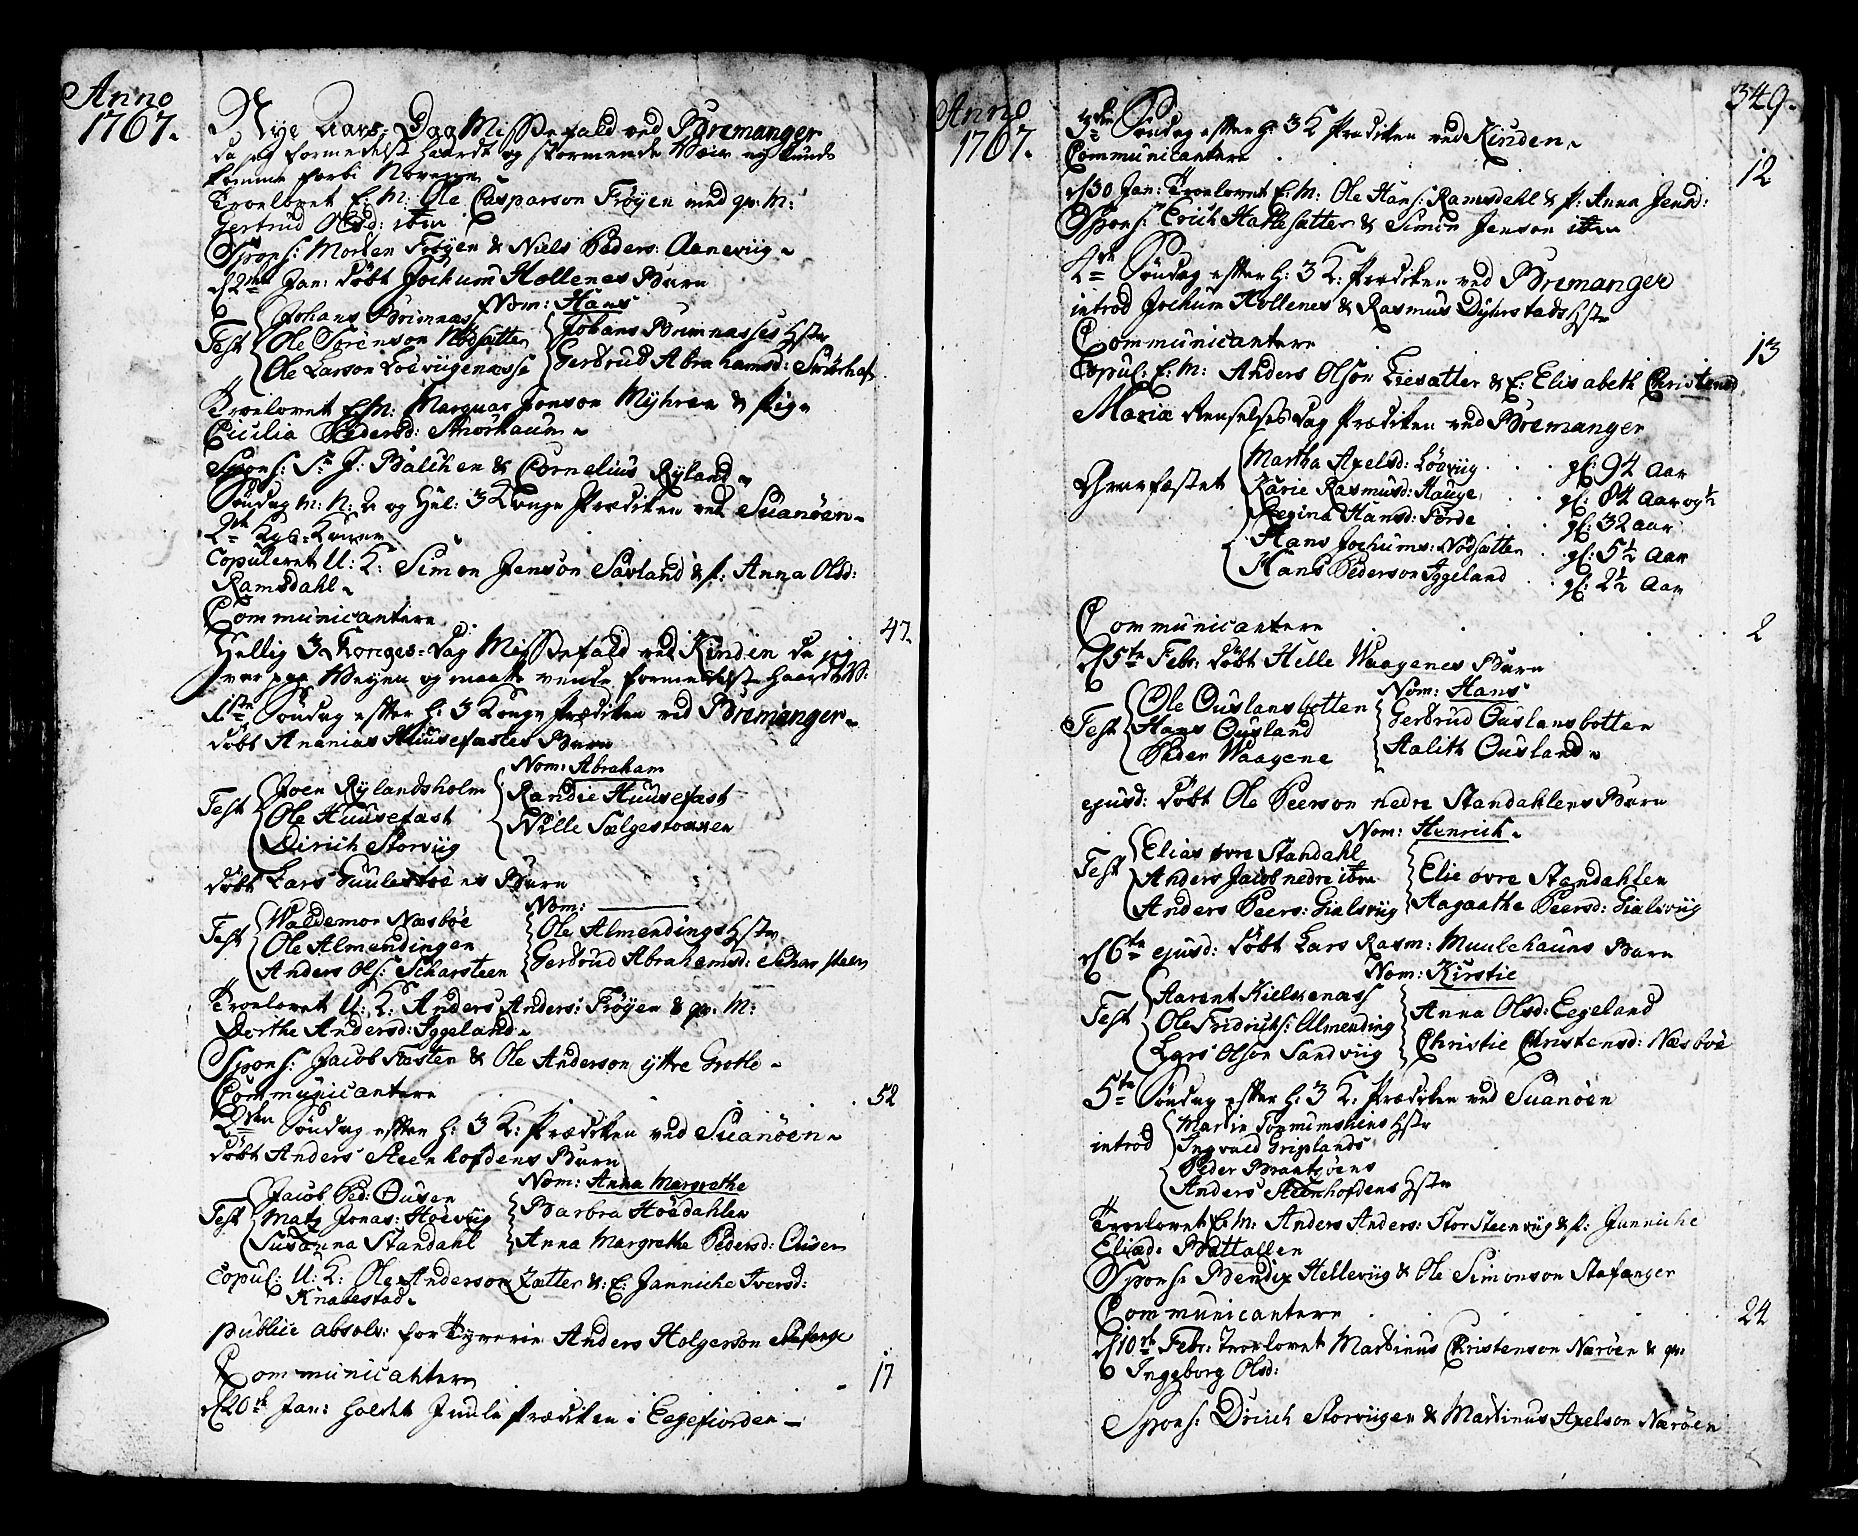 Anno
1767.
Nye Aars-Dag Messefald ved Bremanger
da jeg formedelst haardt og stormende Veir ey kunde
komme forbi
Troelovet E: M: Ole Casparson Frøyen med qv: M:
Gertrud Olsd: ibm
Spons: Morten Frøyen & Niels Peders: Aaneviig.
d 2den Jan: døbt Jochum Hollenes Barn
Nom: Hans
Test Johans Brimnæs
Ole Sørenson Nødsætter
Ole Larson Løeviigenæsse
Johans Brimnæsses Hstr
Gertrud Abrahamsd:
Troelovet E: M: Marquar Jonson Myhren & Pig.
Cicilia Pedersd: Smørhaun.
Spons: Sr J: Balchen & Cornelius Ryland.
Søndag m: N: D og Hel: 3 Konge Prædiken ved Suanøen.
Copuleret U: K: Simon Jenson Savland & p: Anna Olsd:
Ramsdahl.
Communicantere 47.
Hellig 3 Konges-Dag Messefald ved Kinden da jeg
var paa Veyen og maatte vende formedelst haardt V:
1ste Søndag efter H: 3 Konge Prædiken ved Bremanger.
døbt Ananias Huusefastes Barn
Nom: Abraham
Test Joen Rylandsholm
Ole Huusefast
Dirich Storviig
Randie Huusefast
Nille Sælgestokken
døbt Lars Guulestøenes Barn
Nom:
Test Waldemor Næsbøe
Ole Almendingen
Anders Ols: Scharsteen
Ole Almendings Hstr.
Gertrud Abrahamsd: Scharsteen
Troelovet U: K: Anders Anders: Frøyen & qv. M:
Dorthe Andersd: Iggeland.
Spons: Jacob Fasten & Ole Anderson yttre Grotle.
Communicantere 52
2den Søndag efter H: 3 K: Prædiken ved Suanøen.
døbt Anders Steenhofdens Barn
Nom: Anna Margrethe
Test Jacob Ped: Ousen
Mats Jonas: Høeviig
Susanna Standahl
Barbra Høedahlen
Anna Margrethe Pedersd: Ousen
Copul: U: K: Ole Anderson Zætter & E: Janniche Iversd:
Knapestad.
publice absolv: for Tyverie Anders Holgerson
Communicantere 17
d 20de Jan: holdt Juule Prædiken i Eegefiorden.
Anno
1767.
349.
3die Søndag efter H: 3 K Prædiken ved Kinden.
Communicantere 12
d 30 Jan: Troelovet E: M: Ole Hans: Ramsdahl & p: Anna Jensd:
Spons: Erich Hatlesætter & Simon Jenson ibm
4de Søndag efter H: 3 K: Prædiken ved Bremanger
introd Jochum Hollenes & Rasmus Dyhrstads Hstr
Communicantere 13
Copul: E: M: Anders Olson Liesætter & E: Elisabeth Christensd.
Mariæ Renselses Dag Prædiken ved Bremanger
Gravfæstet Martha Axelsd: Løeviig gl: 94 Aar
Karie Rasmusd: Hauge gl: 84 Aar og ½
Regina Hansd: Førde gl: 32 Aar
Hans Jochums: Nødsætter gl: 5½ Aar
Hans Pederson Iggeland gl: 2½ Aar
Communicantere 2
d 5te Febr: døbt Helle Waagenes Barn
Nom: Hans
Test Ole Ouslansbotten
Hans Ousland
Peder Waagene
Gertrud Ouslansbotten
Aalith Ousland.
ejusd: døbt Ole Peerson nedre Standahlens Barn
Nom: Henrich.
Test Elias øvre Standahl
Anders Jacob nedre ibm
Anders Peers: Gialsviig
Elie øvre Standahlen
Aagaathe Peersd: Gialsviig
d 6te ejusd: døbt Lars Rasm: Muulehauns Barn
Nom: Kirstie
Test Aarent Kielkenæs
Ole Fridrichs: Almending
Lars Olson Sandviig
Anna Olsd: Eegeland
Christie Christensd: Næsbøe
5te Søndag efter H: 3 K: Prædiken ved Suanøen
introd Hstr
Ingvald Griplands
Peder Brantsøens
Anders Steenhofdens Hstr
Troelovet E: M: Anders Anders: Storsteenviig & p: Janniche
Eliæd. Battalden
Spons: Bendix Helleviig & Ole Simonson Stafanger
Communicantere 24
d 10de Febr: Troelovet Martinus Christenson Nærøen & qv:
Ingeborg Olsd:
Spons: Dirich Storviigen & Martinus Axelson Nærøen